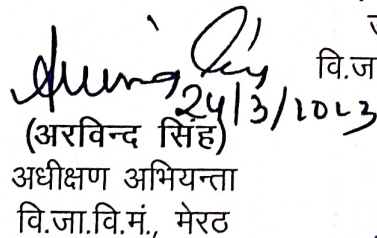 वि.ज
24/3/2023
(अरविन्द सिंह)
अधीक्षण अभियन्ता
वि.जा.वि.मं., मेरठ